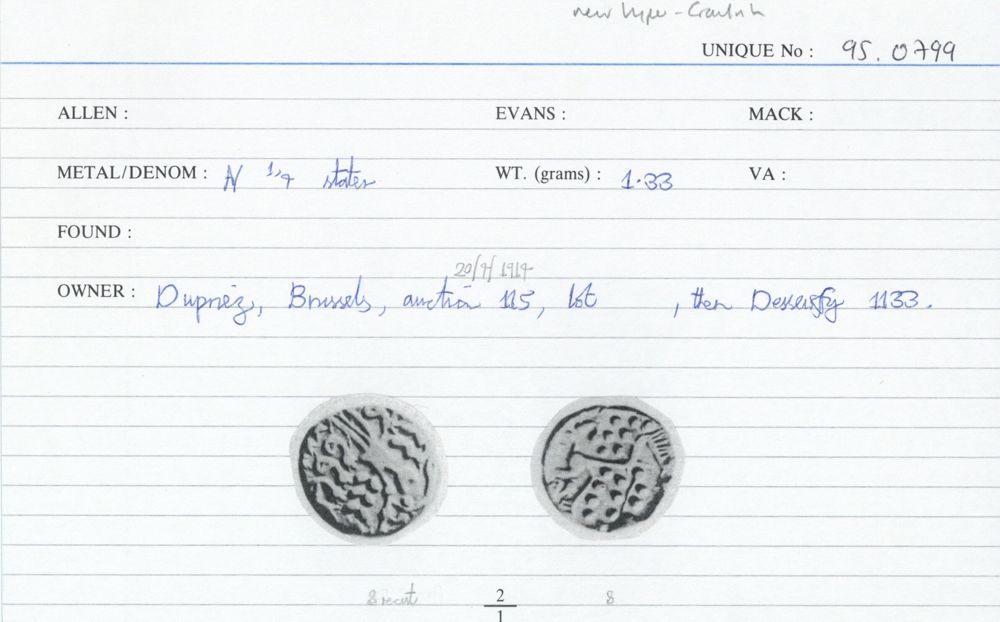 new type -
UNIQUE No : 95.0799
ALLEN : EVANS : MACK :
METAL/DENOM : N 1/4 stater WT. (grams) : 1.33 VA :
FOUND :
20/4/1914
OWNER : Dupriez, Brussels, auction 115, lot , then 1133.
2
1
8